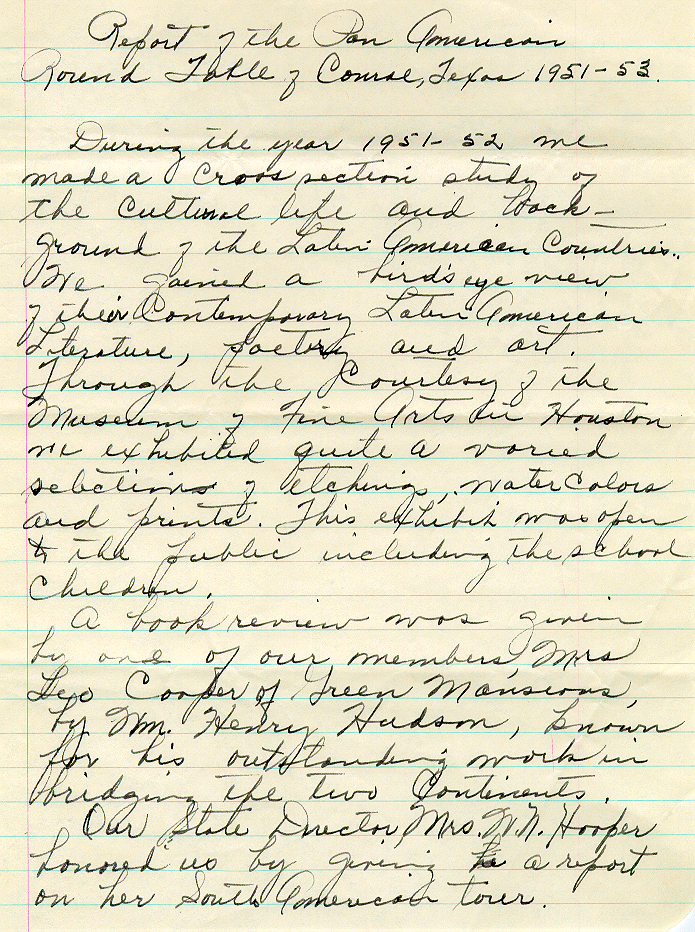 Report of the Pan American
Round Table of Conroe, Texas 1951-53.
During the year 1951-52 we
made a cross section study of
the cultural life and back-
ground of the Latin American Countries.
We gained a bird's eye view
of their Contemporary Latin American
Literature, poetry and art.
Through the Courtesy of the
Museum of Fine Arts in Houston
we exhibited quite a varied
selections of etchings, water colors
and prints. This exhibit was open
to the public including the school
children.
A book review was given
by one of our members, Mrs
Leo Cooper, of Green Mansions,
by Wm. Henry Hudson, known
for his outstanding work in
bridging the two Continents.
Our State Director, Mrs. W.N. Hooper
honored us by giving a report
on her South American tour.